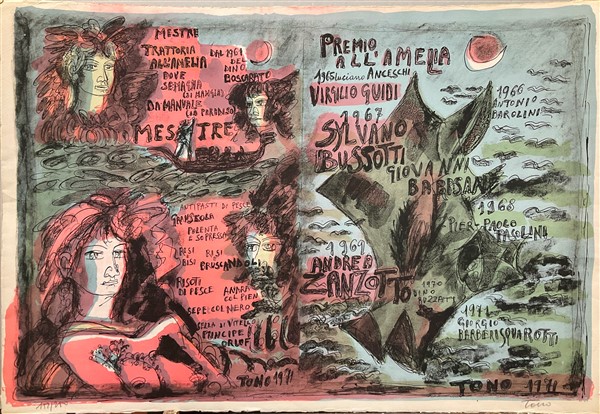 MESTRE
TRATTORIA
ALL'AMELIA
DOVE
SE MAGNA
DA MANUALE
MESTRE
DAL 1961
DEL
DINO
BOSCARATO
ANTIPASTI DI PESCE
GRANSEOLA
POLENTA
E SOPRESSA
RISI
BISI
RISI
BRUSCANDOLI
RISOTI
DI PESCE
ANARA
COL PIEN
SEPE COL NERO
SELLA DI VITELLO
PRINCIPE
ORLOF
TONO 1971
PREMIO
ALL'AMELIA
1965 Luciano ANCESCHI
VIRGILIO GUIDI
1966
ANTONIO
BAROLINI
1967
SYLVANO
BUSSOTTI
GIOVANNI
BARBISAN
1968
PIER-PAOLO
PASOLINI
1969
ANDREA
ZANZOTTO
1970
DINO
BUZZATI
1971
GIORGIO
BARBERI SQUAROTTI
TONO 1971